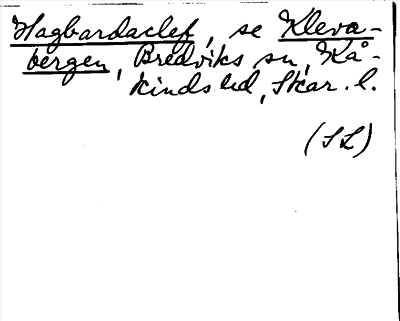 Hagbardaclef, se Kleva-
bergen, Bredviks sn, Kå-
kinds hd, Skar. l.
(SL)